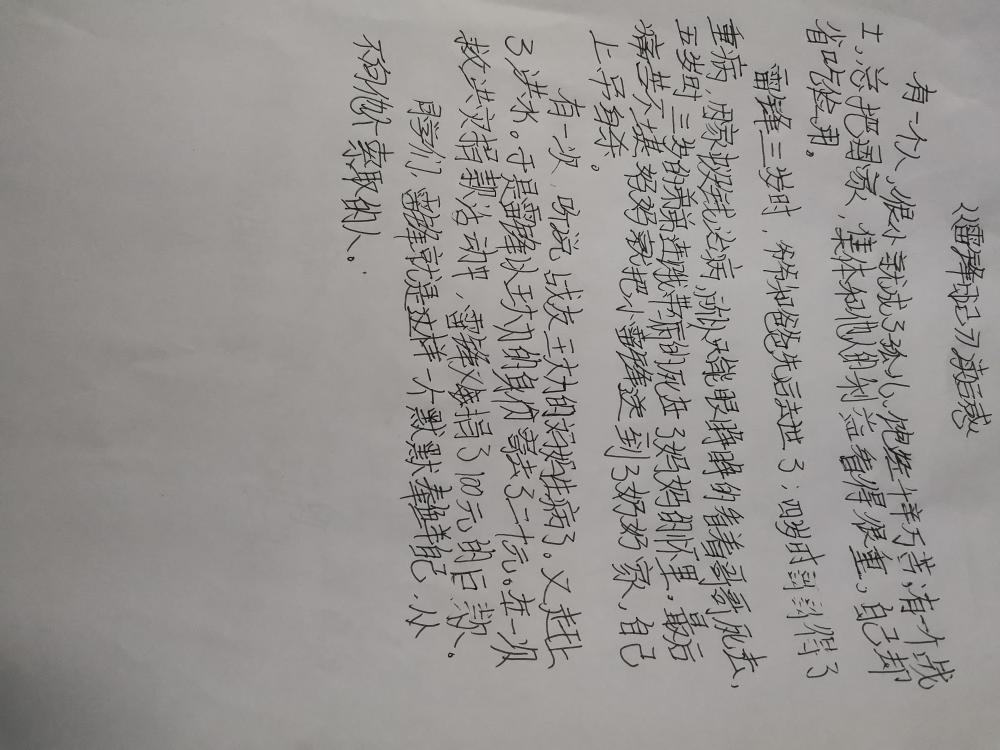 《雷锋日记》读后感
有一个人,很小就成了孤儿,饱经千辛万苦;有一个战
士,总把国家、集体和他人的利益看得很重,自己却
省吃俭用。
雷锋三岁时,爷爷和爸爸先后去世了;四岁时哥哥得了
重病,因家没钱治病,所以只能眼睁睁的看着哥哥死去,
五岁时三岁的弟弟连饿带病的死在了妈妈的怀里。最后
痛苦不堪妈妈家把小雷锋送到了好好家,自己
上吊自杀。
有一次,听说战友王大力的妈妈生病了。又赶上
了洪水。于是雷锋以王大力的身份寄去了二十元。在一次
救洪灾捐款活动中,雷锋又每捐了100元的巨款。
同学们,雷锋就是这样一个默默奉献自己、从
不向他人索取的人。